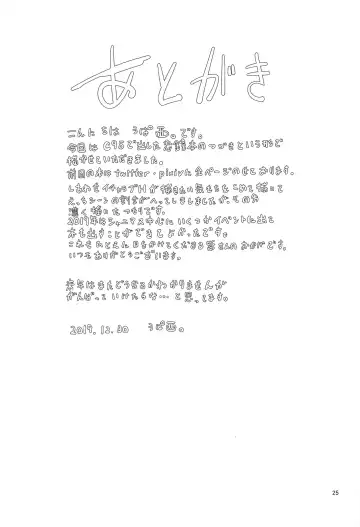 あとがき
こんにちは うぱ西。です。
今回は C95で出した 本のつづきという形で
描かせていただきました。
前回の本は twitter・pixivに全ページのせております。
しわわせイチャラブHが描きたい気もちをこめて描いて
えっちシーンの割合がへってしまいましたが、その分
濃く描いたつもりです。
2019年はシャニマスを中心にいくつかイベントに出て
本を出すことができてよかったです。
これもたとえに目をかけてくださる皆さんのおかげです。
いつもありがとうございます。
来年はまだどうなるかわかりませんが
がんばっていけたらな…と思ってます。
2019.12.30 うぱ西。
25